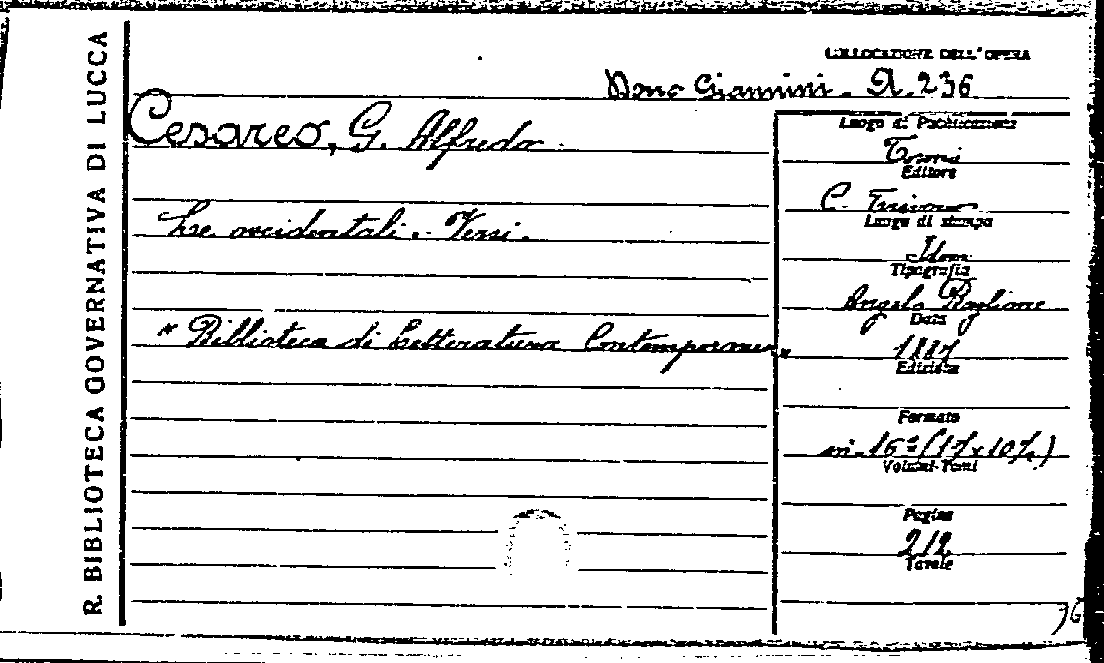 R. BIBLIOTECA GOVERNATIVA DI LUCCA
COLLOCAZIONE DELL'OPERA
Dono Giannini. A. 236
Cesareo, G. Alfredo.
Le occidentali. Versi.
"Biblioteca di Letteratura Contemporanea"
Luogo di Pubblicazione
Torino
Editore
C. Triverio
Luogo di stampa
Idem
Tipografia
Angelo Baglione
Data
1887
Edizione
Formato
in-16º (17x10½)
Volumi-Tomi
Pagine
212
Tavole